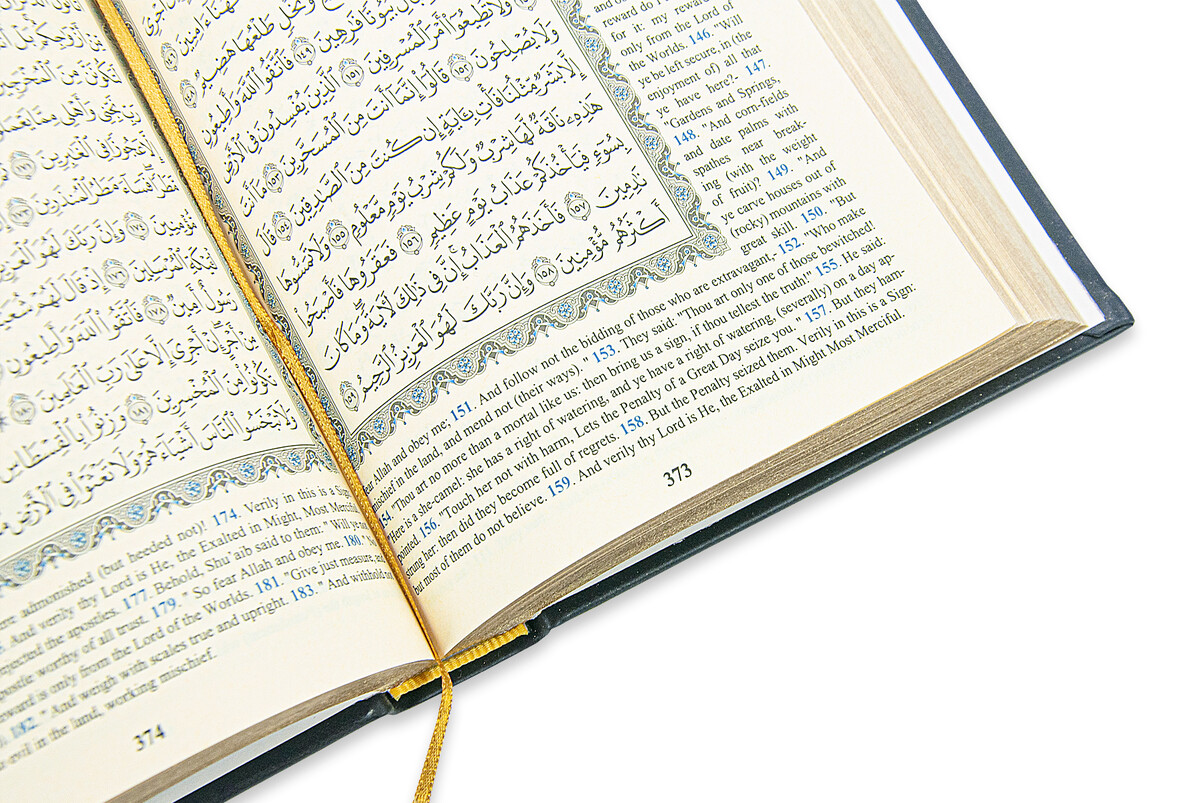 ءَامِنِينَ ١٤٦
وَنَخْلٍ طَلْعُهَا هَضِيمٌ ١٤٨
بُيُوتًا فَٰرِهِينَ ١٤٩ فَٱتَّقُوا۟ ٱللَّهَ وَأَطِيعُونِ
وَلَا تُطِيعُوٓا۟ أَمْرَ ٱلْمُسْرِفِينَ ١٥١ ٱلَّذِينَ يُفْسِدُونَ فِى ٱلْأَرْضِ
وَلَا يُصْلِحُونَ ١٥٢ قَالُوٓا۟ إِنَّمَآ أَنتَ مِنَ ٱلْمُسَحَّرِينَ ١٥٣ مَآ أَنتَ
إِلَّا بَشَرٌ مِّثْلُنَا فَأْتِ بِـَٔايَةٍ إِن كُنتَ مِنَ ٱلصَّٰدِقِينَ ١٥٤ قَالَ
هَٰذِهِۦ نَاقَةٌ لَّهَا شِرْبٌ وَلَكُمْ شِرْبُ يَوْمٍ مَّعْلُومٍ ١٥٥ وَلَا تَمَسُّوهَا
بِسُوٓءٍ فَيَأْخُذَكُمْ عَذَابُ يَوْمٍ عَظِيمٍ ١٥٦ فَعَقَرُوهَا فَأَصْبَحُوا۟
نَٰدِمِينَ ١٥٧ فَأَخَذَهُمُ ٱلْعَذَابُ إِنَّ فِى ذَٰلِكَ لَءَايَةً وَمَا كَانَ
أَكْثَرُهُم مُّؤْمِنِينَ ١٥٨ وَإِنَّ رَبَّكَ لَهُوَ ٱلْعَزِيزُ ٱلرَّحِيمُ ١٥٩
reward do I
for it: my reward
only from the Lord of
the Worlds. 146. "Will
ye be left secure, in (the
enjoyment of) all that
ye have here?- 147.
"Gardens and Springs,
148. "And corn-fields
and date palms with
spathes near break-
ing (with the weight
of fruit)? 149. "And
ye carve houses out of
(rocky) mountains with
great skill. 150. "But
fear Allah and obey me; 151. And follow not the bidding of those who are extravagant,- 152. "Who make
mischief in the land, and mend not (their ways)." 153. They said: "Thou art only one of those bewitched!
154. "Thou art no more than a mortal like us: then bring us a sign, if thou tellest the truth!" 155. He said:
"Here is a she-camel: she has a right of watering, and ye have a right of watering (severally) on a day ap-
pointed. 156. "Touch her not with harm, Lets the Penalty of a Great Day seize you." 157. But they ham-
strung her: then did they become full of regrets. 158. But the Penalty seized them. Verily in this is a Sign:
but most of them do not believe. 159. And verily thy Lord is He, the Exalted in Might Most Merciful.
373
لَتَكُونَنَّ مِنَ ٱلْمُخْرَجِينَ
رَبِّ نَجِّنِى وَأَهْلِى مِمَّا يَعْمَلُونَ
إِلَّا عَجُوزًا فِى ٱلْغَٰبِرِينَ
مَّطَرًا فَسَآءَ مَطَرُ ٱلْمُنذَرِينَ
مُّؤْمِنِينَ ١٧٤ وَإِنَّ رَبَّكَ لَهُوَ ٱلْعَزِيزُ
لْـَٔيْكَةِ ٱلْمُرْسَلِينَ ١٧٦ إِذْ قَالَ لَهُمْ شُعَيْبٌ
رَسُولٌ أَمِينٌ ١٧٨ فَٱتَّقُوا۟ ٱللَّهَ وَأَطِيعُونِ
مِنْ أَجْرٍ إِنْ أَجْرِىَ إِلَّا عَلَىٰ رَبِّ ٱلْعَٰلَمِينَ ١٨٠
تَكُونُوا۟ مِنَ ٱلْمُخْسِرِينَ ١٨١ وَزِنُوا۟ بِٱلْقِسْطَاسِ
وَلَا تَبْخَسُوا۟ ٱلنَّاسَ أَشْيَآءَهُمْ وَلَا تَعْثَوْا۟ فِى ٱلْأَرْضِ
were admonished (but heeded not)! 174. Verily in this is a Sign
And verily thy Lord is He, the Exalted in Might, Most Merciful
rejected the apostles. 177. Behold, Shu'aib said to them: "Will ye not
apostle worthy of all trust. 179. " So fear Allah and obey me. 180.
reward is only from the Lord of the Worlds. 181. "Give just measure,
182. " And weigh with scales true and upright. 183. " And withhold not
evil in the land, working mischief.
374